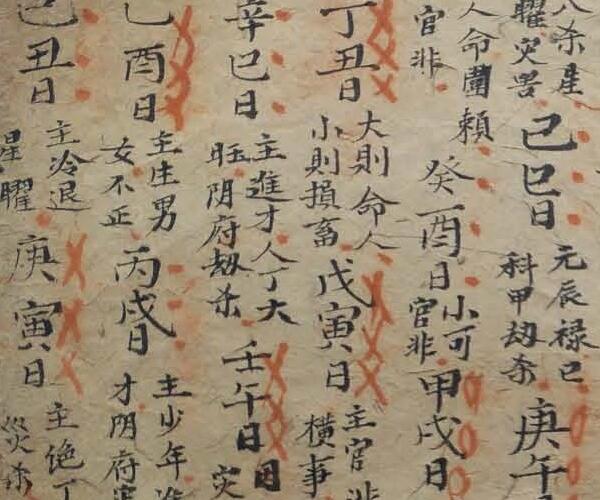 八杀星
曜灾
己巳日
元辰禄已
科甲劫杀
庚午
人命圖賴
官非
癸酉日
小可
官非
甲戌日
丁丑日
大則命人
小則損畜
戊寅日
主官非
橫事
辛巳日
主進才人丁大
旺阴府劫杀
壬午日
灾
己酉日
主庄男
女不正
丙戌日
主少年
才阴府
己丑日
主冷退
星曜
庚寅日
主绝丁
災杀